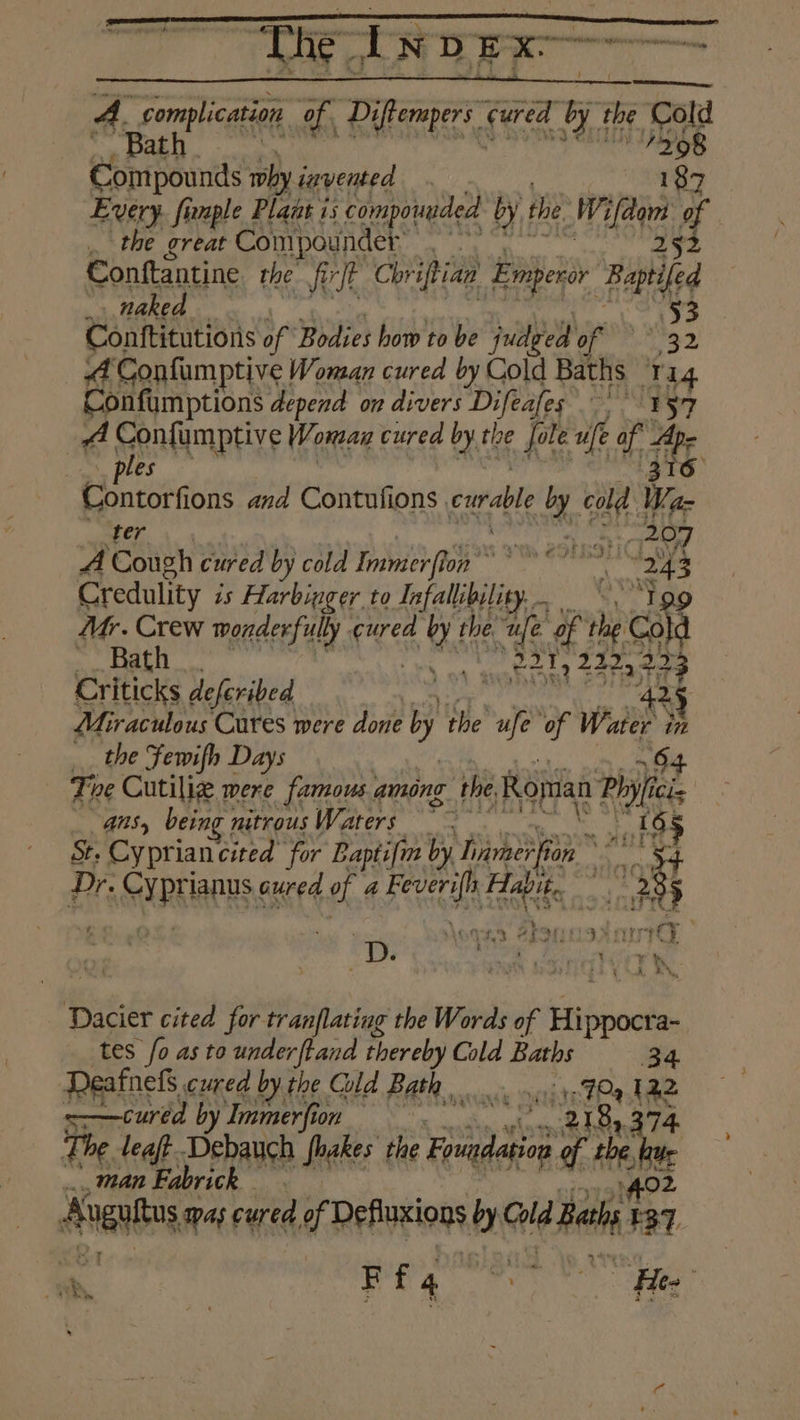 The INDEX.
A complication of Diſtempers cured by the Cold
Bath 298
Compounds why invented 187
Every ſimple Plant is compounded by the Wiſdom of
the great Compounder 252
Conſtantine the firſt Chriſtian Emperor Baptiſed
naked 53
Conſtitutions of Bodies how to be judged of 32
A Conſumptive Woman cured by Cold Baths 114
Conſumptions depend on divers Diſeaſes 157
A Conſumptive Woman cured by the ſole uſe of Ap-
ples 316
Contorſions and Contuſions curable by cold Wa-
ter 207
A Cough cured by cold Immerſion 243
Credulity is Harbinger to Infallibility 199
Mr. Crew wonderfully cured by the uſe of the Cold
Bath 221, 222, 223
Criticks deſcribed 425
Miraculous Cures were done by the uſe of Water in
the Jewiſh Days 64
The Cutiliæ were famous among the Roman Phyſici-
ans, being nitrous Waters 165
St. Cyprian cited for Baptiſm by Immerſion 54
Dr. Cyprianus cured of a Feveriſh Habit. 285
D.
Dacier cited for tranſlating the Words of Hippocra-
tes ſo as to underſtand thereby Cold Baths 34
Deafneſs cured by the Cold Bath 70, 122
——cured by Immerſion 218, 374
The leaſt Debauch ſhakes the Foundation of the hu-
man Fabrick 402
Auguſtus was cured of Defluxions by Cold Baths 137
Ff 4 He-